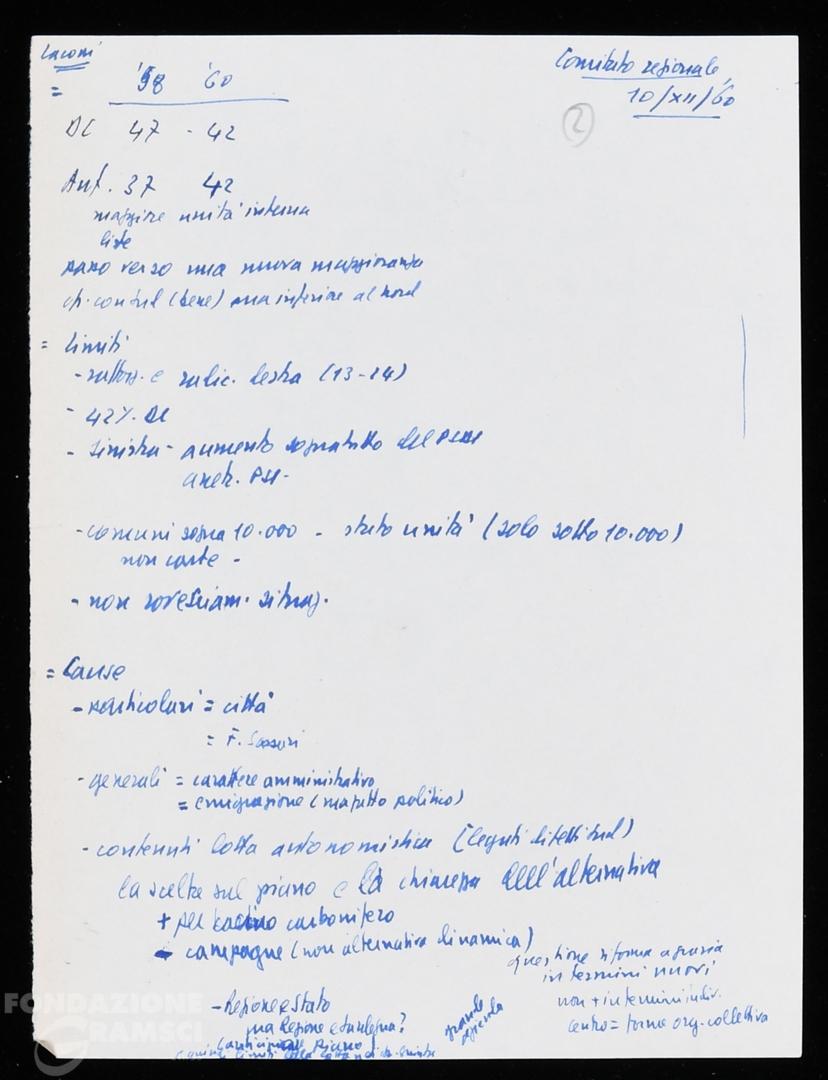 Laconi
Comitato regionale,
10/XII/60
=
'58 '60
2
DC 47 - 42
Aut. 37 42
maggiore unità interna
liste
passo verso una nuova maggioranza
(bene) ma inferiore al nord
= limiti
- e radic. destra (13-14)
- 42% DC
- sinistra - aumento soprattutto del
anch.
- comuni sopra 10.000 - stato unità (solo sotto 10.000)
non
- non rovesciam. situaz.
= Cause
- particolari = città
= F. Sassari
- generali = carattere amministrativo
= emigrazione (ma fatto politico)
- contenuti lotta autonomistica
la scelta sul piano e la chiarezza dell'alternativa
+ per bacino carbonifero
- campagne (non alternativa dinamica)
questione riforma agraria
in termini nuovi
non + in termini indiv.
centro = forme org. collettive
- Regione e Stato
ma Regione e Sardegna?
piano
grande
azienda
FONDAZIONE
GRAMSCI